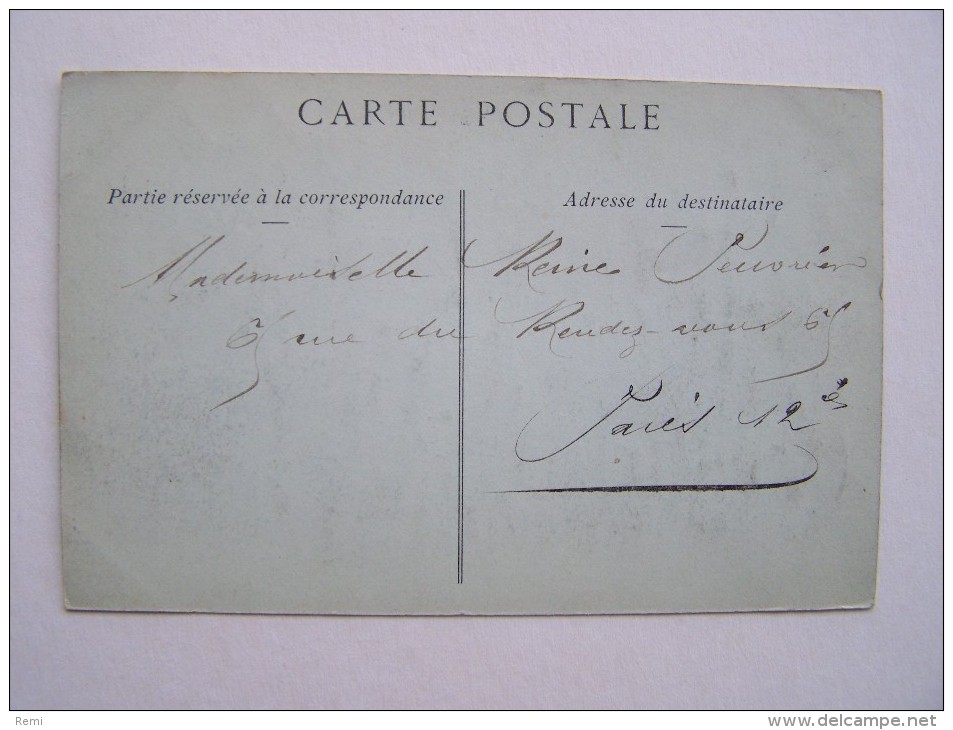 CARTE POSTALE
Partie réservée à la correspondance
Adresse du destinataire
Mademoiselle Reine
65 rue du Rendez-vous 65
Paris 12è
Remi
delcampe.net